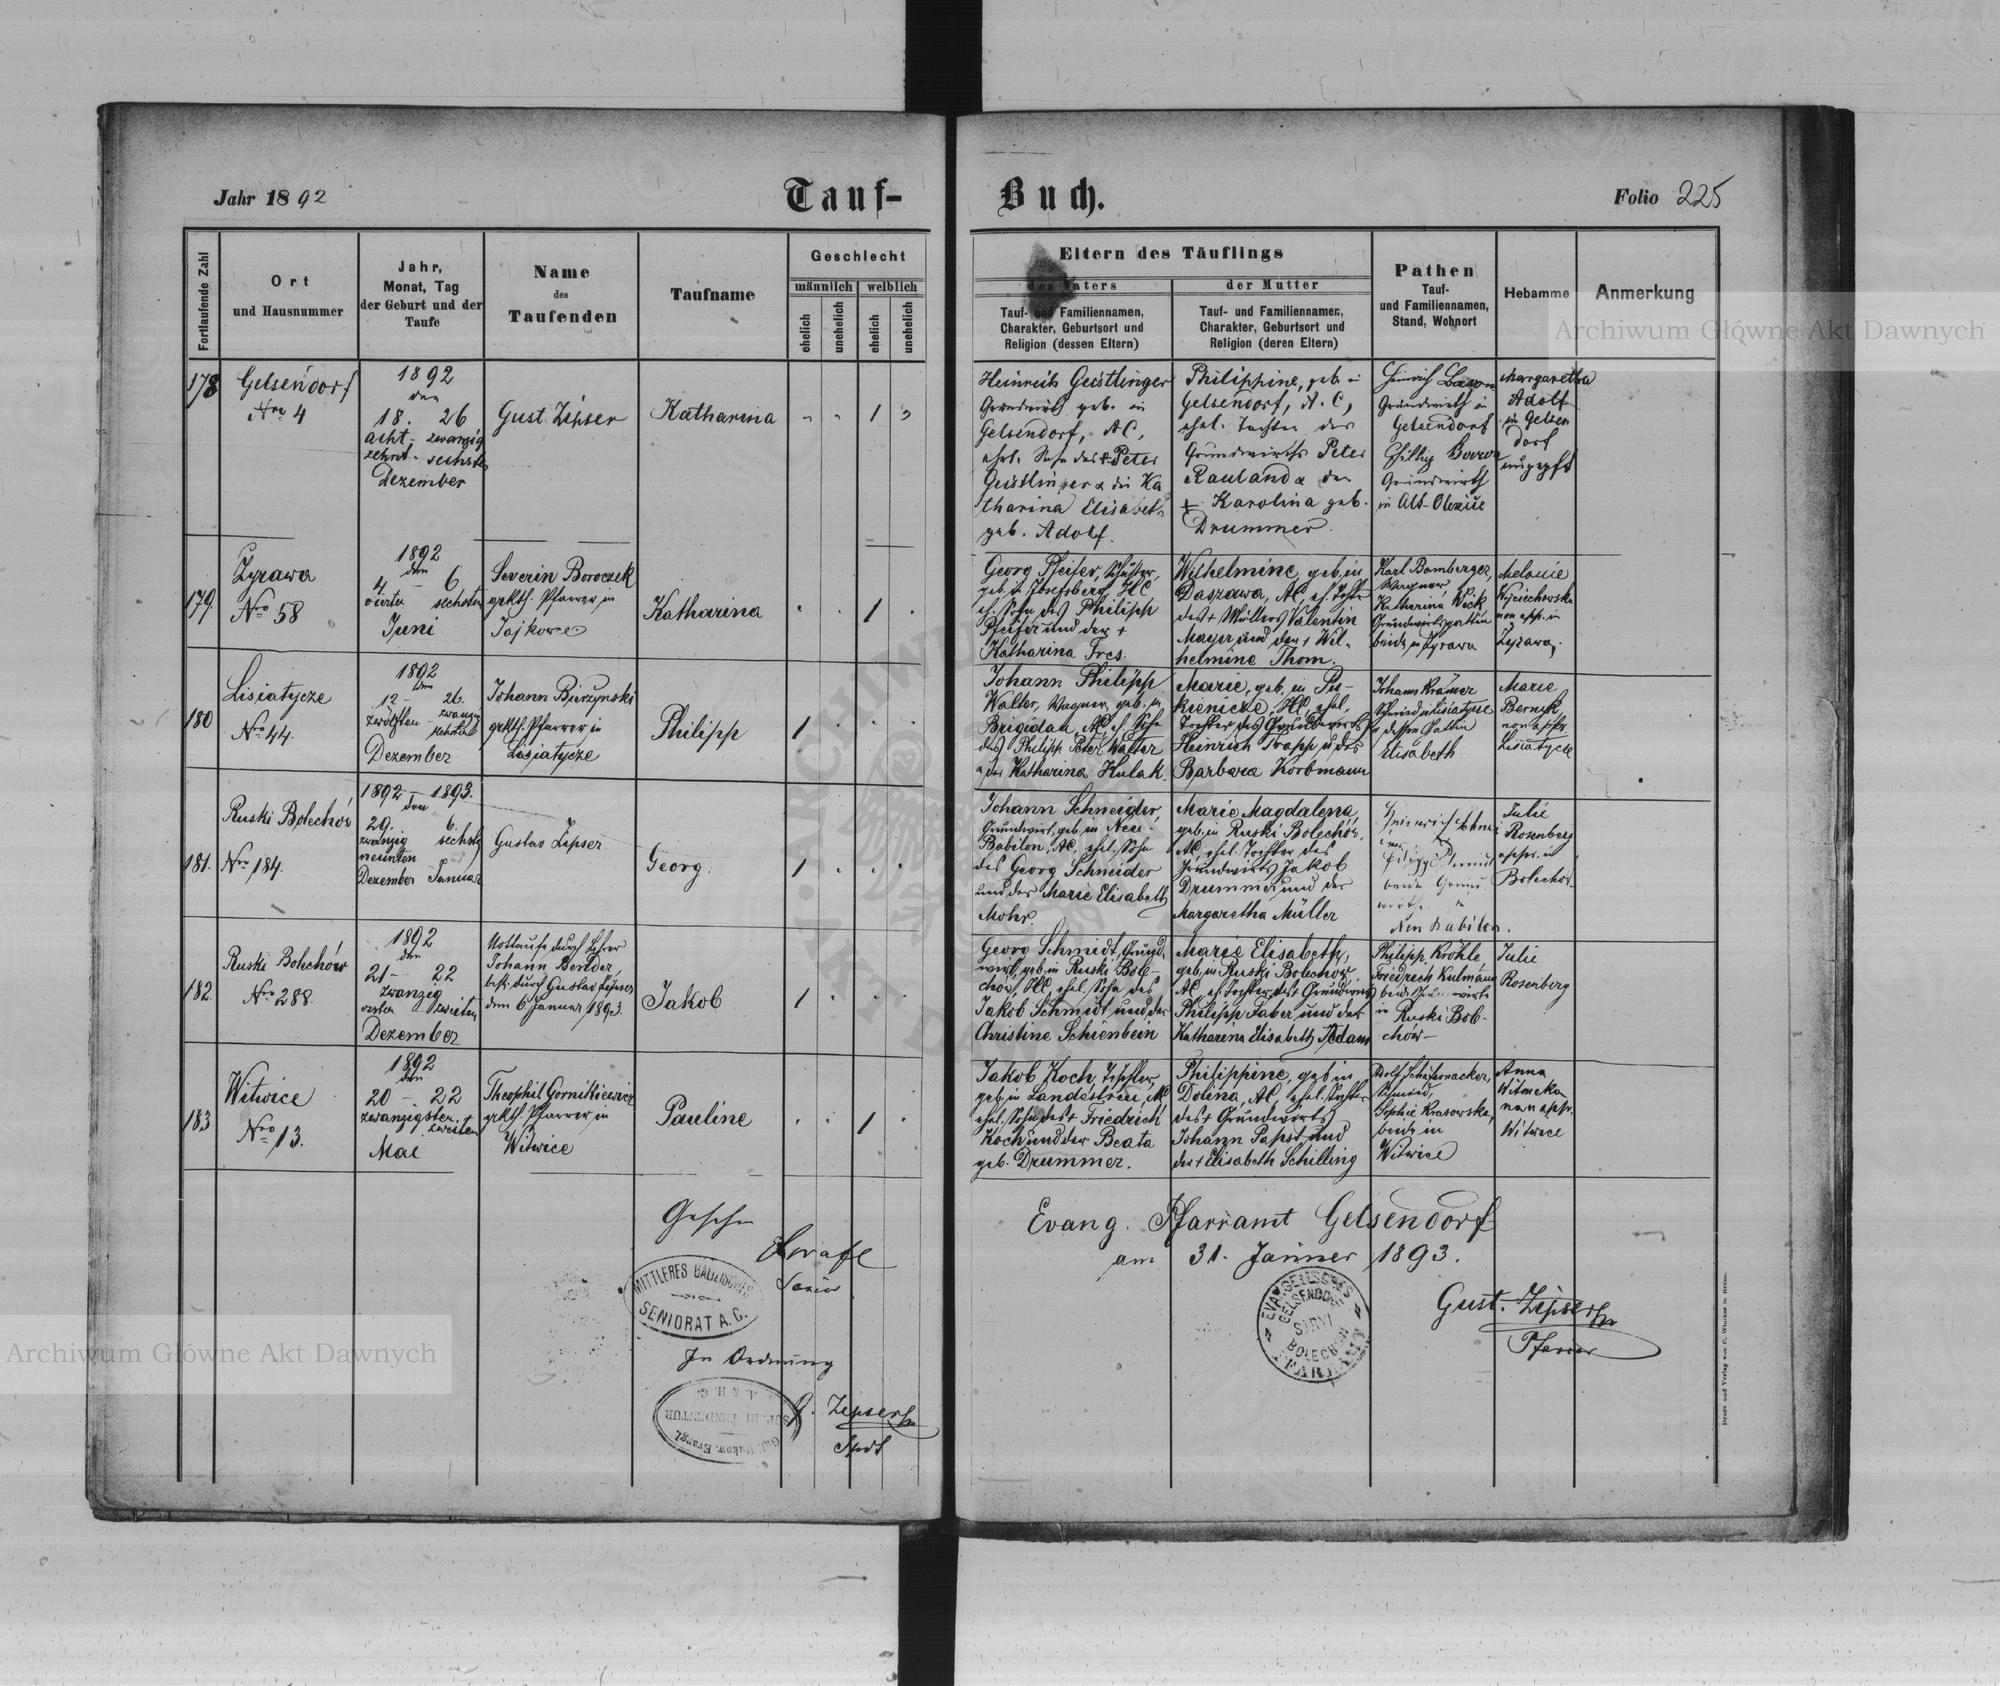 Jahr 1892
Tauf-
Buch.
Folio 225
Fortlaufende Zahl
Ort
und Hausnummer
Jahr,
Monat, Tag
der Geburt und der
Taufe
Name
des
Taufenden
Taufname
Geschlecht
männlich
weiblich
ehelich
unehelich
ehelich
unehelich
Eltern des Täuflings
des Vaters
Tauf- und Familiennamen,
Charakter, Geburtsort und
Religion (dessen Eltern)
der Mutter
Tauf- und Familiennamen,
Charakter, Geburtsort und
Religion (deren Eltern)
Pathen
Tauf-
und Familiennamen,
Stand, Wohnort
Hebamme
Anmerkung
178
Gelsendorf
Nro 4
1892
den
18. 26
acht- zwanzig
zehnt- sechsten
Dezember
Gust. Zipser
Katharina
1
Heinrich Geistlinger
Grundwirth geb. in
Gelsendorf, AC,
ehel. Sohn des + Peter
Geistlinger & der Ka
tharina Elisabeth
geb. Adolf.
Philippine, geb. in
Gelsendorf, A.C,
ehel. Tochter des
Grundwirths Peter
Rauland & der
+ Karolina geb.
Drummer.
Heinrich
Grundwirth in
Gelsendorf
Grundwirth
in Alt-Olexice
Margaretha
Adolf
in Gelsen
dorf
ungeprft
179.
Zyrawa
Nro 58
1892
den
4. - 6.
vierten sechsten
Juni
Severin Boroczek
grkth. Pfarrer in
Jajkowce
Katharina
1
Georg Pfeifer, Schuster,
geb. in Josefsberg, HC
eh. Sohn des Philipp
Pfeifer und der +
Katharina Fres.
Wilhelmine, geb. in
Daszawa, AC, eh. Tochter
des + Müllers Valentin
Mayer und der + Wil-
helmine Thom.
Karl Bamberger,
Wagner,
Katharina Weck
Grundwirthsgattin
beide in Zyrawa
Melanie
Wojciechowska
non appr. in
Zyrawa.
180
Lisiatycze
Nro 44.
1892
den
12 - 26.
zwölften - zwanzig
sechsten
Dezember
Johann Buczynski
grkth. Pfarrer in
Lisiatycze
Philipp
1
Johann Philipp
Walter, Wagner, geb. in
Brigidau, AC, eh. Sohn
des Philipp Peter Walter
u. der Katharina Hulak.
Marie, geb. in Pu-
kienicze, HC, ehel.
Tochter des Grundwirths
Heinrich Trapp u. der
Barbara Korbmann
Johann Krämer
Schmied in Lisiatycze
u. dessen Gattin
Elisabeth
Marie
Bernyk,
non appr.
Lisiatycze
181.
Ruski Bolechów
Nro 184.
1892 - 1893.
den
29. 6.
zwanzig sechsten
neunten
Dezember Januar
Gustav Zipser
Georg.
1
Johann Schneider,
Grundwirt, geb. in Neu-
Babilon, AC, ehel. Sohn
des Georg Schneider
und der Marie Elisabeth
Mohr.
Marie Magdalena,
geb. in Ruski Bolechów,
AC, ehel. Tochter des
Grundwirts Jakob
Drummer und der
Margaretha Müller
beide Grund
wirthe in
Neu Babilon.
Julie
Rosenberg
appr. in
Bolechów
182.
Ruski Bolechów
Nro 288.
1892
den
21- 22
zwanzig
ersten zweiten
Dezember
Nottaufe durch Lehrer
Johann Bender,
best. durch Gustav Zipser
den 6. Januar 1893.
Jakob
1
Georg Schmidt, Grund-
wirt, geb. in Ruski Bole-
chów, HC, ehel. Sohn des
Jakob Schmidt und der
Christine Schienbein
Marie Elisabeth,
geb. in Ruski Bolechow
AC, eh. Tochter des + Grundwirts
Philipp Faber und der
Katharina Elisabeth Adam
Philipp Kröhle,
Friedrich Kulmann
beide Grundwirte
in
Ruski Bole-
chów-
Julie
Rosenberg
183
Witwice
Nro 13.
1892
den
20 - 22
zwanzigsten
zweiten
Mai
Theophil Gornikiewicz
grkth. Pfarrer in
Witwice
Pauline
1
Jakob Koch, Tischler,
geb. in Landestreu, AC
ehel. Sohn des + Friedrich
Koch und der Beata
geb. Drummer.
Philippine, geb. in
Dolina, AC, ehel. Tochter
des + Grundwirts
Johann Papst und
der + Elisabeth Schilling
Adolf Schatzmacker,
Schmied,
Sophie Krasowska,
beide in
Witwice
Anna
Witwicka
non appr.
Witwice
Gesehen
Senior
MITTLERES GALIZISCHES
SENIORAT A. C.
In Ordnung
G. Zipser
Spdt
Evang. Pfarramt Gelsendorf
am 31. Jänner 1893.
Gust. Zipser
Pfarrer
EVANGELISCHES
GELSENDORF
STRYJ
BOLECHÓW
PFARRAMT
Archiwum Główne Akt Dawnych
Archiwum Główne Akt Dawnych